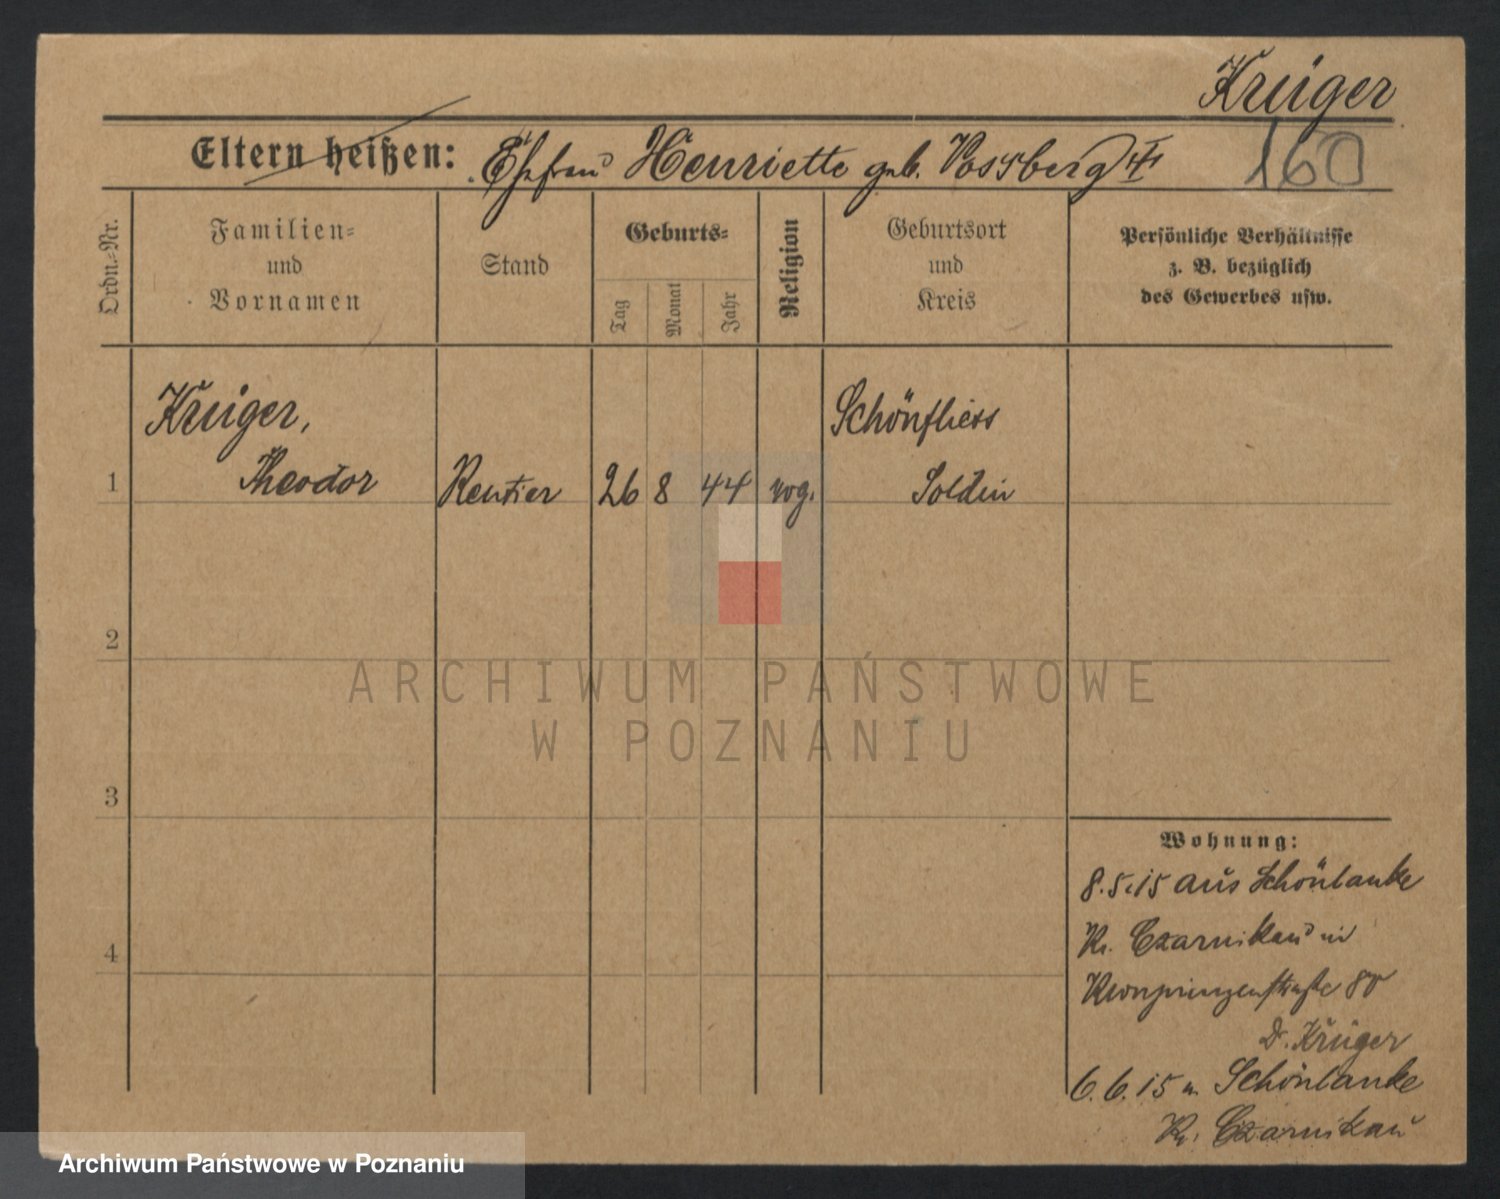 Krüger
160
Eltern heißen: Ehefrau Henriette geb. Vossberg
Ordn.-Nr.
Familien-
und
Vornamen
Stand
Geburts-
Tag
Monat
Jahr
Religion
Geburtsort
und
Kreis
Persönliche Verhältnisse
z. B. bezüglich
des Gewerbes usw.
Krüger, Schönfliess
1 Theodor Rentier 26 8 44 Soldin
2
ARCHIWUM PAŃSTWOWE
W POZNANIU
3
Wohnung:
8.5.15 aus Schönlanke
Kr. Czarnikau in
4
Kronprinzenstraße 80
D. Krüger
6.6.15 n. Schönlanke
Kr. Czarnikau
Archiwum Państwowe w Poznaniu